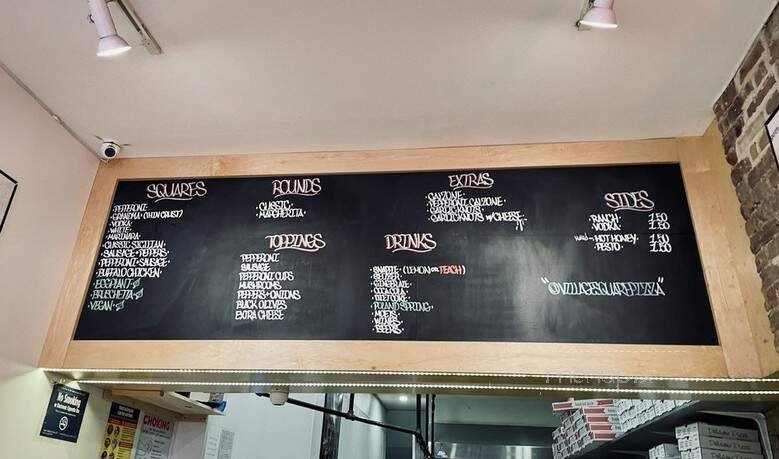 SQUARES
• PEPPERONI •
• GRANDMA • (THIN CRUST)
• VODKA •
• WHITE •
• MARINARA •
• CLASSIC SICILIAN •
• SAUSAGE • PEPPERS •
• PEPPERONI • SAUSAGE •
• BUFFALO CHICKEN •
• EGGPLANT •
• BRUSCHETTA •
• VEGAN •
ROUNDS
• CLASSIC •
• MARGHERITA •
TOPPINGS
PEPPERONI
SAUSAGE
PEPPERONI CUPS
MUSHROOMS
PEPPERS • ONIONS
BLACK OLIVES
EXTRA CHEESE
EXTRAS
• CALZONE •
• PEPPERONI CALZONE •
• GARLIC KNOTS •
• GARLIC KNOTS W/ CHEESE •
DRINKS
• SNAPPLE • (LEMON OR PEACH)
• SELTZER
• GINGERALE
• COCA COLA
• DIET COKE
• POLAND SPRING •
• WINES
• BEERS
SIDES
RANCH 1.50
VODKA 1.50
HOT HONEY • 1.50
PESTO 1.50
"@VILLAGESQUAREPIZZA"
No Smoking
CHOKING